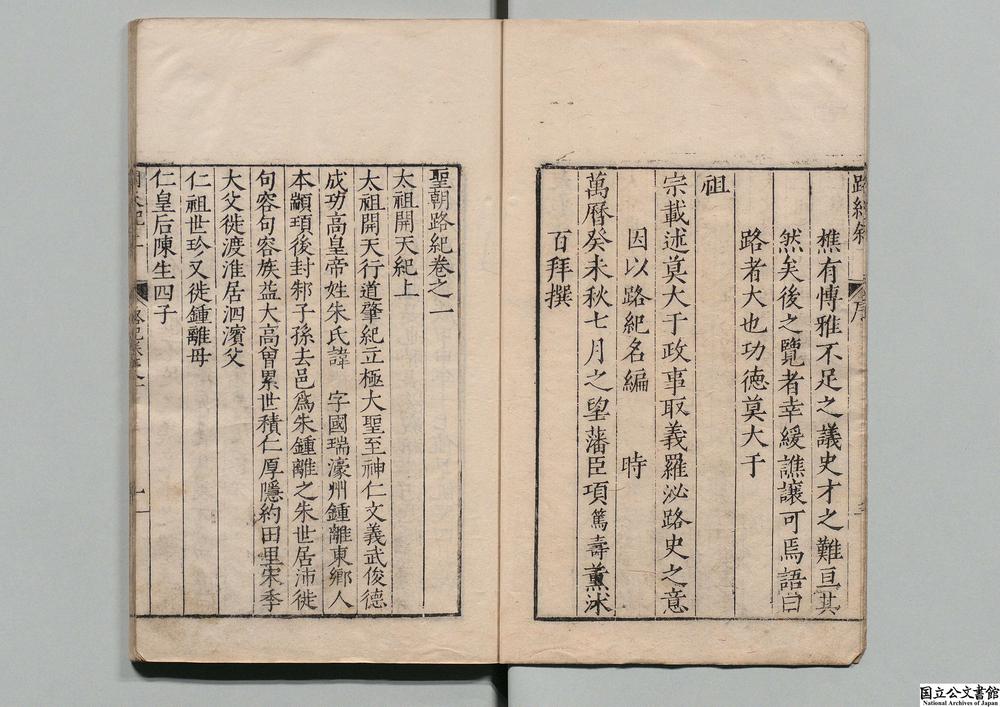 樵有慱雅不足之議史才之難亘其
然矣後之覽者幸緩譙讓可焉語曰
路者大也功德莫大于
祖
宗載述莫大于政事取義羅泌路史之意
因以路紀名編 時
萬曆癸未秋七月之望藩臣項篤壽薰沐
百拜撰
聖朝路紀卷之一
太祖開天紀上
太祖開天行道肇紀立極大聖至神仁文義武俊德
成功高皇帝姓朱氏諱 字國瑞濠州鍾離東鄉人
本顓頊後封邾子孫去邑爲朱鍾離之朱世居沛徙
句容句容族益大高曾累世積仁厚隱約田里宋季
大父徙渡淮居泗濱父
仁祖世珍又徙鍾離母
仁皇后陳生四子
国立公文書館
National Archives of Japan